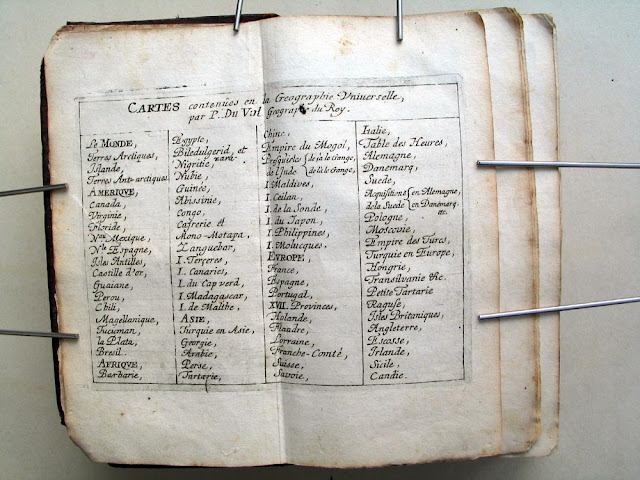 CARTES contenües en la Geographie Vniverselle,
par P. Du Val Geographe du Roy.
Le MONDE,
Terres Arctiques,
Islande,
Terres Ant-arctiques
AMERIQVE,
Canada,
Virginie,
Floride,
Nou. Mexique,
Nle. Espagne,
Isles Antilles,
Castille d'or,
Guaiane,
Perou,
Chili,
Magellanique,
Tucuman,
la Plata,
Bresil.
AFRIQVE,
Barbarie,
Egypte,
Biledulgerid, et
Nigritie,
Nubie,
Guinée,
Abissinie,
Congo,
Cafrerie et
Mono-Motapa,
Zanguebar,
I. Terçeres,
I. Canaries,
I. du Cap verd,
I. Madagascar,
I. de Malthe,
ASIE,
Turquie en Asie,
Georgie,
Arabie,
Perse,
Tartarie,
Chine,
Empire du Mogol,
Presqu'isles de ça le Gange,
de l'Jnde de là le Gange,
I. Maldives,
I. Ceilan,
I. de la Sonde,
I. du Japon,
I. Philippines,
I. Molucques,
EVROPE,
France,
Espagne,
Portugal,
XVII. Provinces,
Holande,
Flandre,
Lorraine,
Franche-Comté,
Suisse,
Savoie,
Italie,
Table des Heures,
Alemagne,
Danemarq,
Suede,
Acquisitions en Alemagne,
de la Suede en Danemarq.
etc.
Pologne,
Moscovie,
Empire des Turcs,
Turquie en Europe,
Hongrie,
Transilvanie &c.
Petite Tartarie
Raguse,
Isles Britaniques,
Angleterre,
Escosse,
Irlande,
Sicile,
Candie.